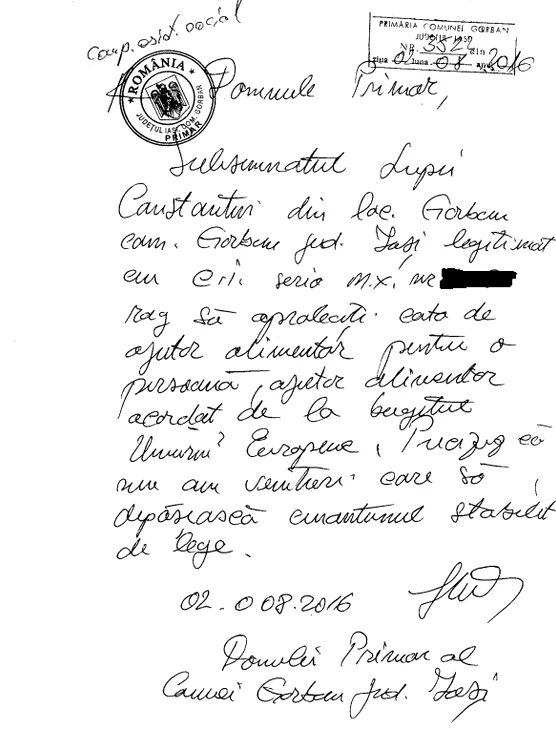 comp. asist. social
PRIMĂRIA COMUNEI GORBAN
JUDEȚUL IAȘI
NR. 3521 din
ziua 02 luna 08 anul 2016
ROMÂNIA
JUDEȚUL IAȘI, COM. GORBAN
PRIMAR
Domnule Primar,
Subsemnatul Lupu
Constantin din loc. Gorban
com. Gorban jud. Iași legitimat
cu C.I. seria M.X. nr
rog să aprobați cota de
ajutor alimentar pentru o
persoană, ajutor alimentar
acordat de la bugetul
Uniunii Europene, Precizez că
nu am venituri care să
depăsiască cuantumul stabilit
de lege.
02.008.2016
Domului Primar al
Comnei Gorban jud. Iași